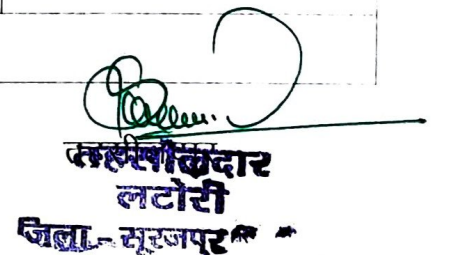 तहसीलदार
लटोरी
जिला - सूरजपुर